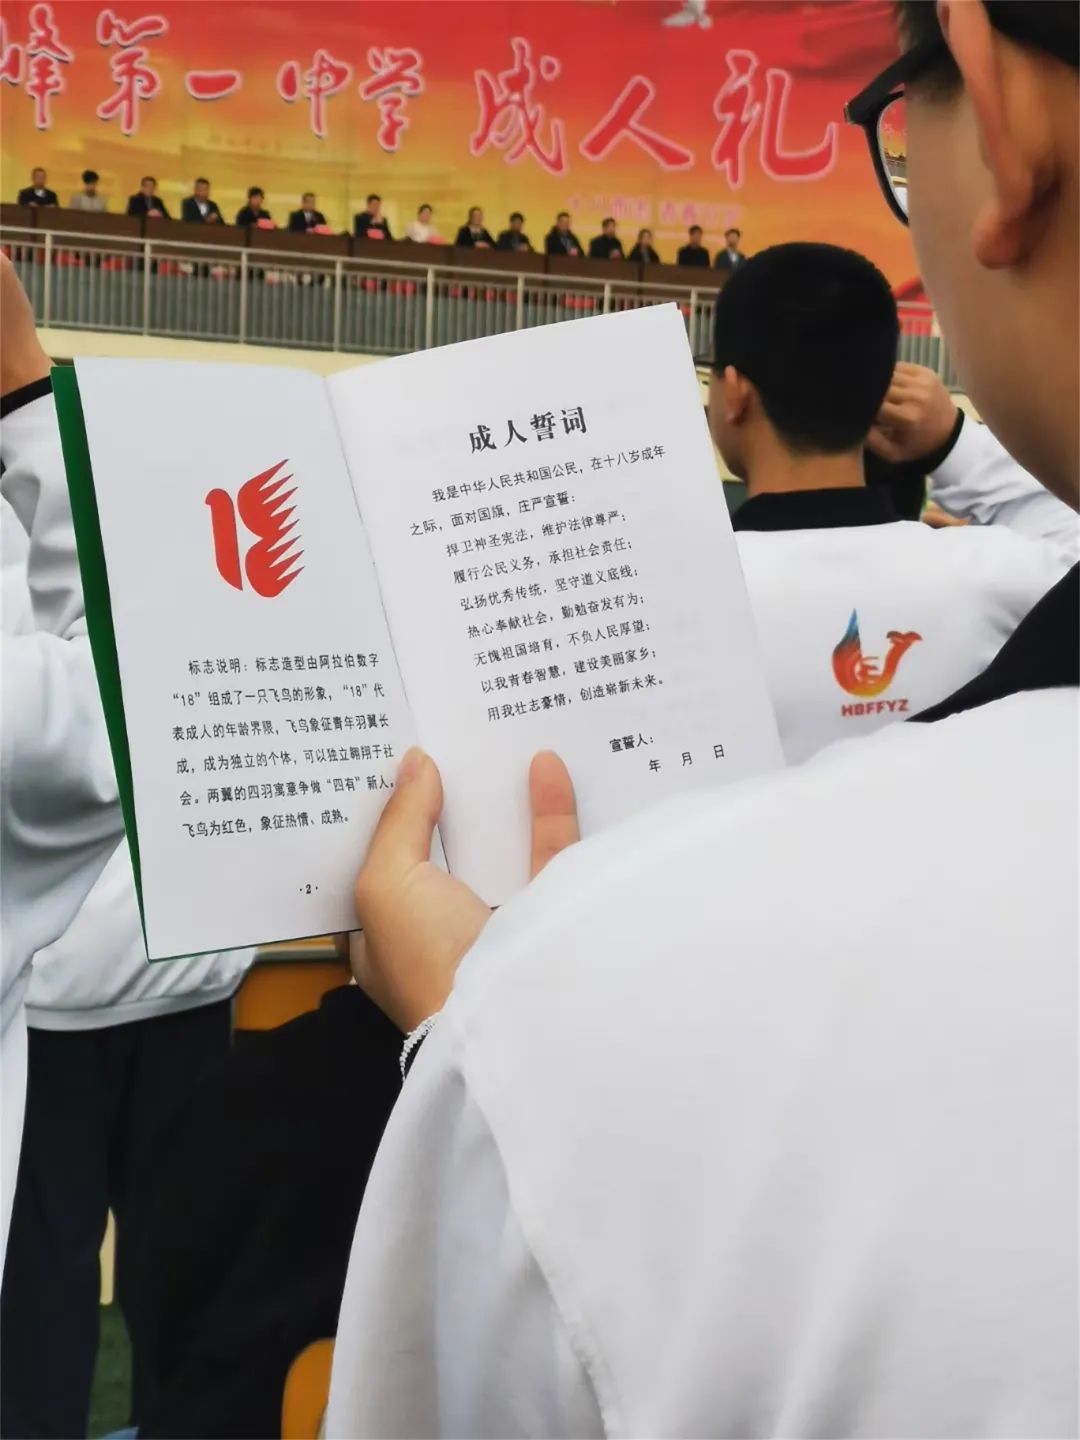 峰第一中学 成人礼
标志说明：标志造型由阿拉伯数字
“18”组成了一只飞鸟的形象，“18”代
表成人的年龄界限，飞鸟象征青年羽翼长
成，成为独立的个体，可以独立翱翔于社
会。两翼的四羽寓意争做“四有”新人。
飞鸟为红色，象征热情、成熟。
·2·
成人誓词
我是中华人民共和国公民，在十八岁成年
之际，面对国旗，庄严宣誓：
捍卫神圣宪法，维护法律尊严；
履行公民义务，承担社会责任；
弘扬优秀传统，坚守道义底线；
热心奉献社会，勤勉奋发有为；
无愧祖国培育，不负人民厚望；
以我青春智慧，建设美丽家乡；
用我壮志豪情，创造崭新未来。
宣誓人：
年 月 日
HBFFYZ